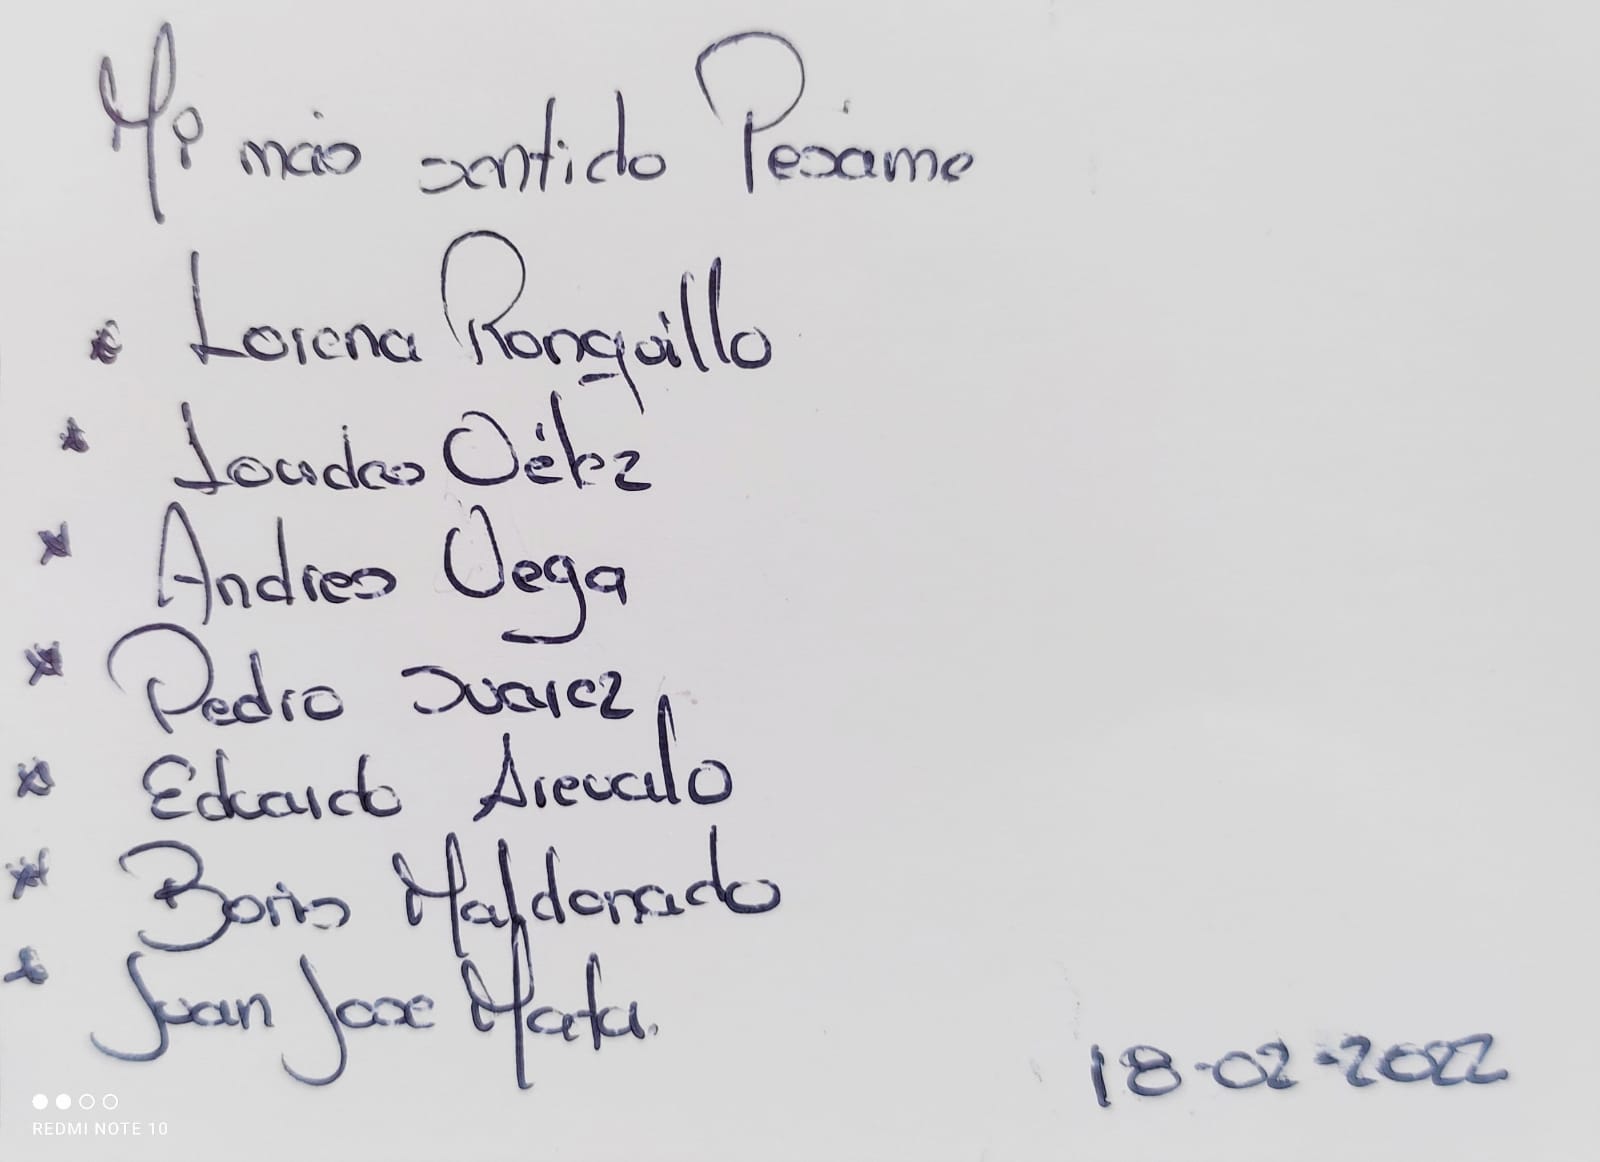 Mi más sentido Pésame
* Lorena Ronquillo
* Lourdes Vélez
* Andres Vega
* Pedro Juarez
* Eduardo Arevalo
* Boris Maldonado
* Juan Jose Mata.
18-02-2022
REDMI NOTE 10